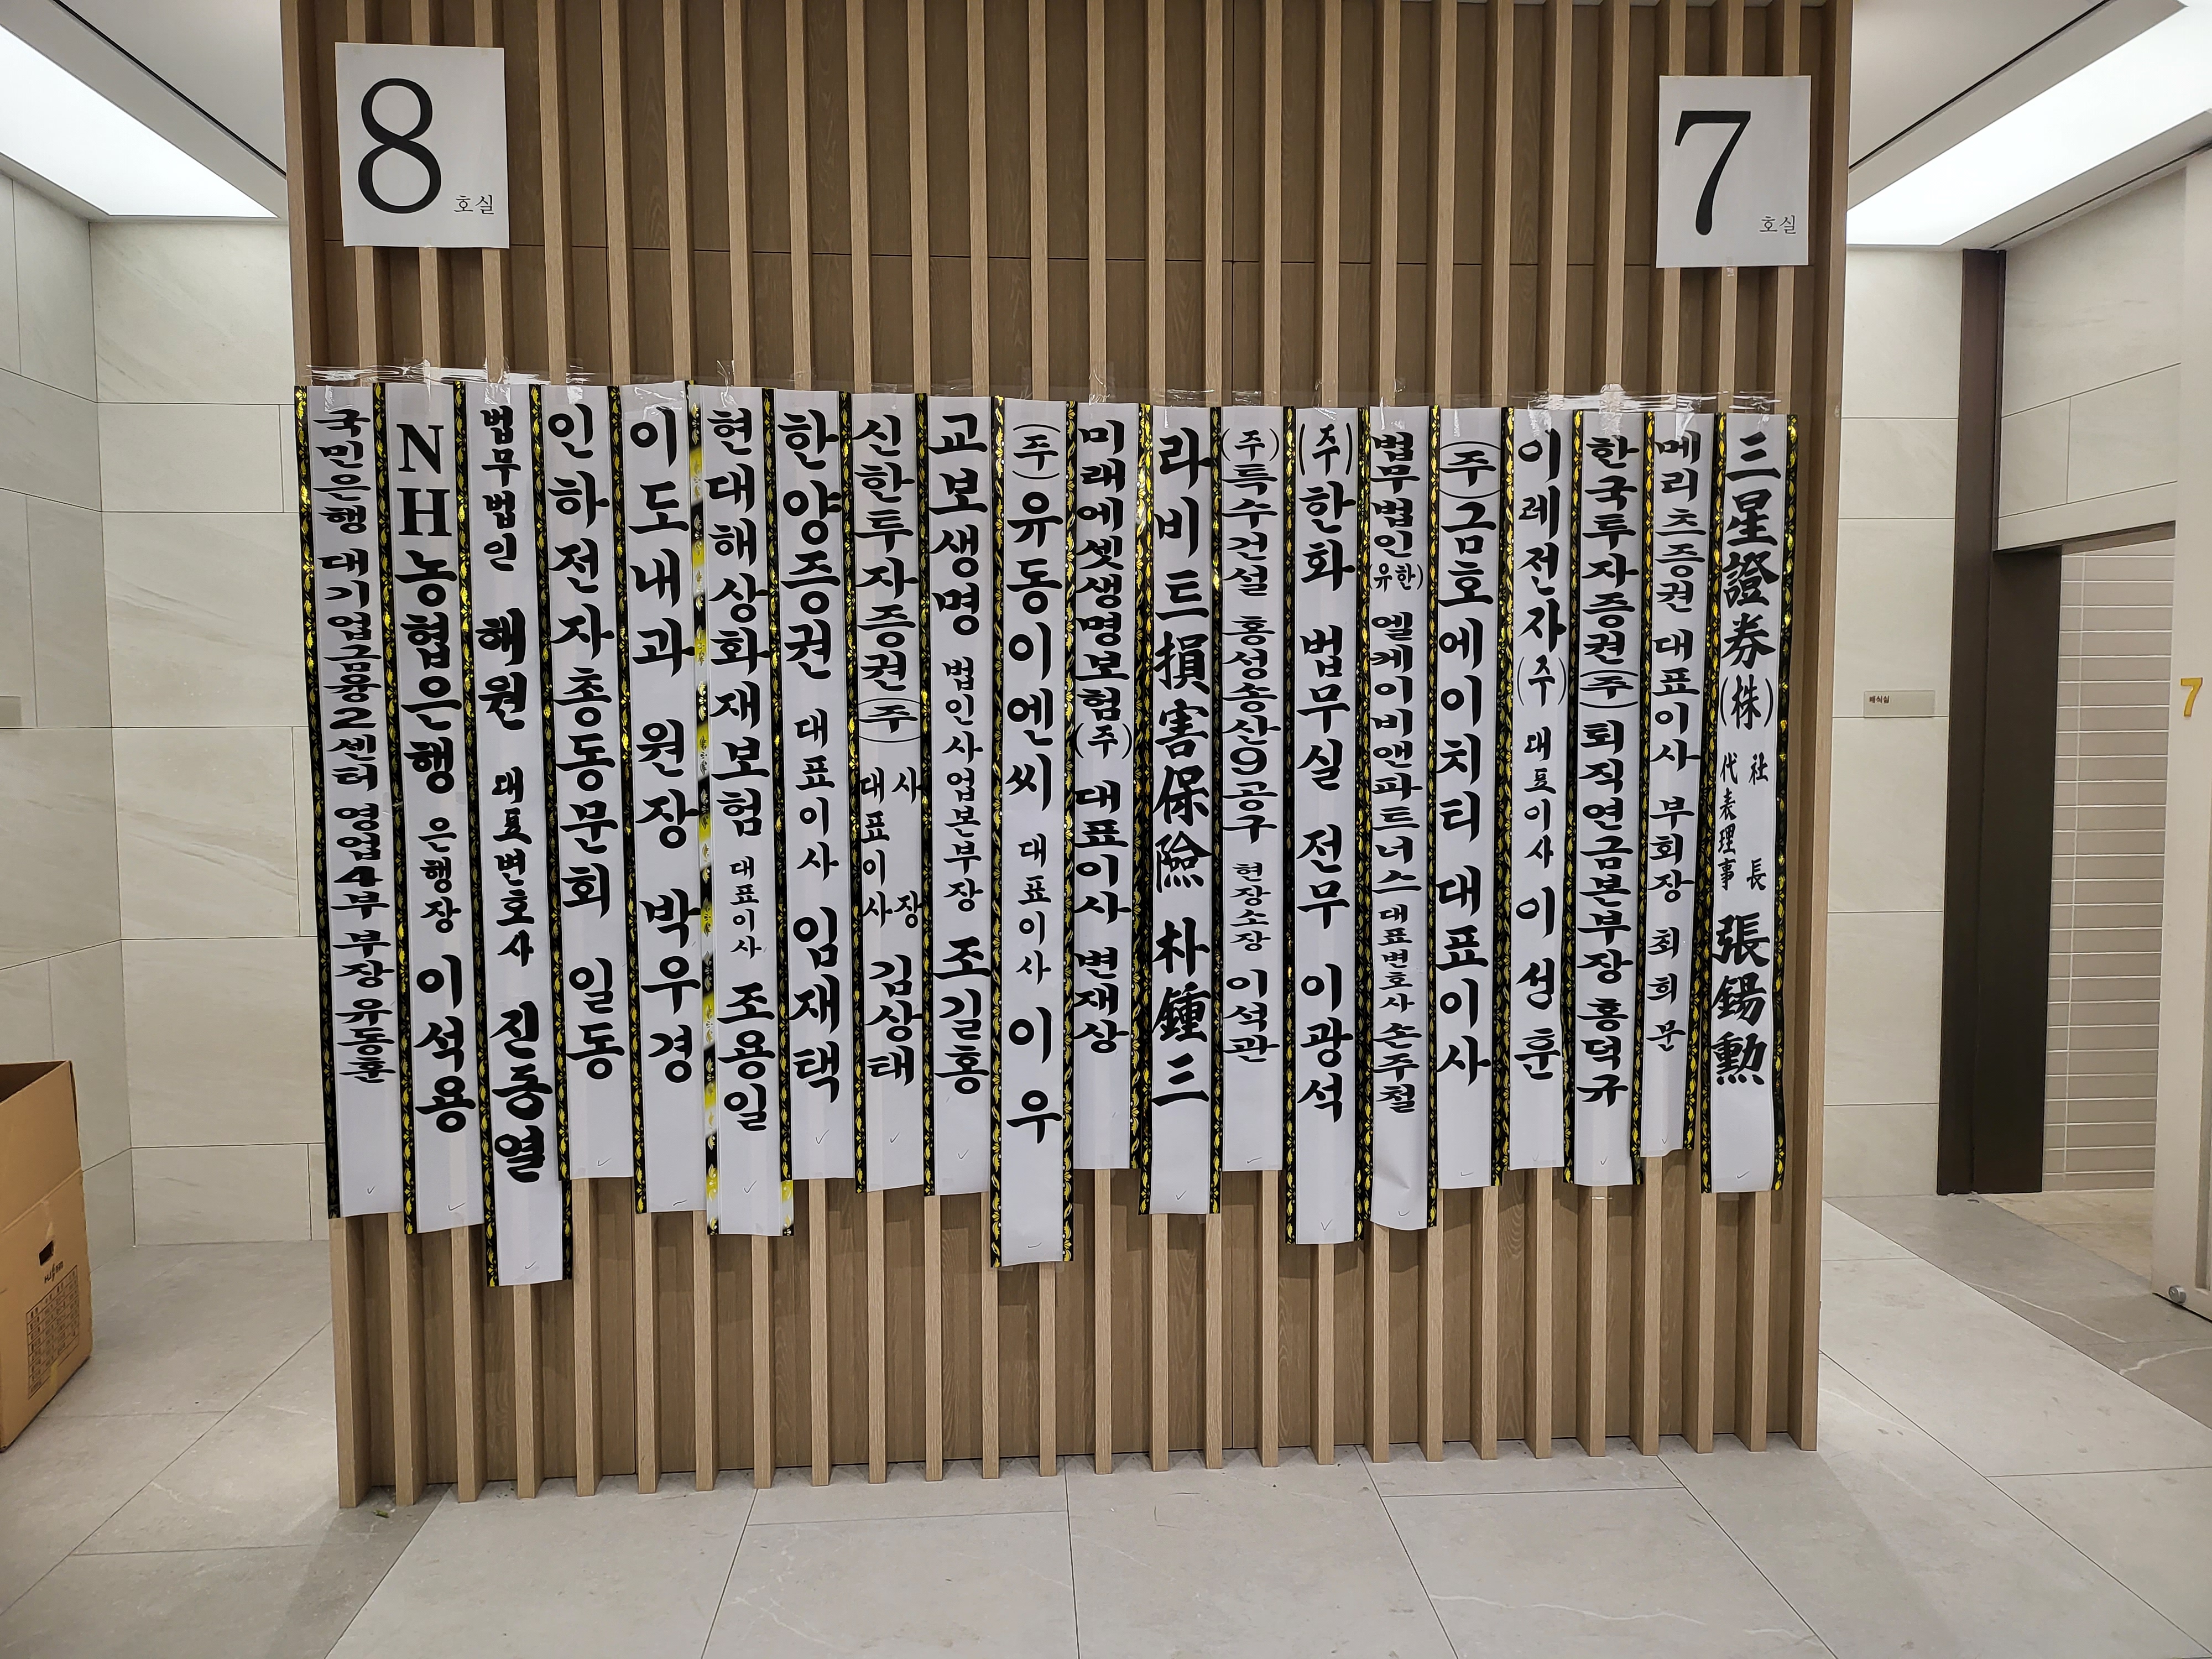 8 호실
7 호실
국민은행 대기업금융2센터 영업4부 부장 유동훈
NH농협은행 은행장 이석용
법무법인 해원 대표변호사 진동열
인하전자총동문회 일동
이도내과 원장 박우경
현대해상화재보험 대표이사 조용일
한양증권 대표이사 임재택
신한투자증권(주) 대표이사 사장 김상태
교보생명 법인사업본부장 조길홍
(주)유동이엔씨 대표이사 이우
미래에셋생명보험(주) 대표이사 변재상
라비트損害保險 朴鍾三
(주)특수건설 홍성송산9공구 현장소장 이석관
(주)한화 법무실 전무 이광석
법무법인(유한) 엘케이비앤파트너스 대표변호사 손주철
(주)금호에이치티 대표이사
이레전자(주) 대표이사 이성훈
한국투자증권(주) 퇴직연금본부장 홍덕규
메리츠증권 대표이사 부회장 최희문
三星證券(株) 代表理事 社長 張錫勳
배식실
7